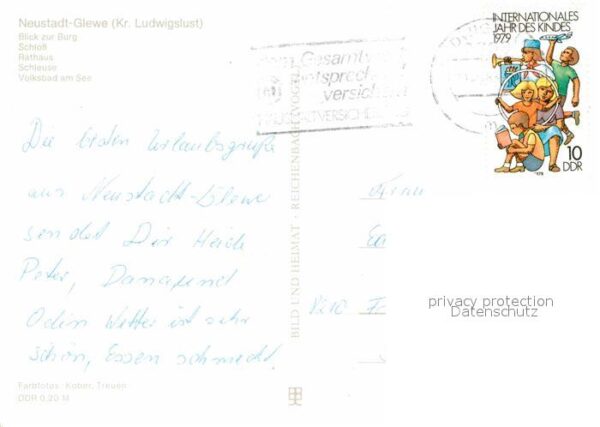 Neustadt-Glewe (Kr. Ludwigslust)
Blick zur Burg
Schloß
Rathaus
Schleuse
Volksbad am See
INTERNATIONALES
JAHR DES KINDES
1979
10
DDR
Gesamt
entsprec
versich
Die besten Urlaubsgrüße
aus Neustadt-Glewe
sendet Dir Heidi
Peter, Dana und
Odin Wetter ist sehr
schön, Essen schmeckt.
BILD UND HEIMAT · REICHENBACH (VOGTL)
Frau
privacy protection
Datenschutz
Farbfotos: Kober, Treuen
DDR 0,20 M